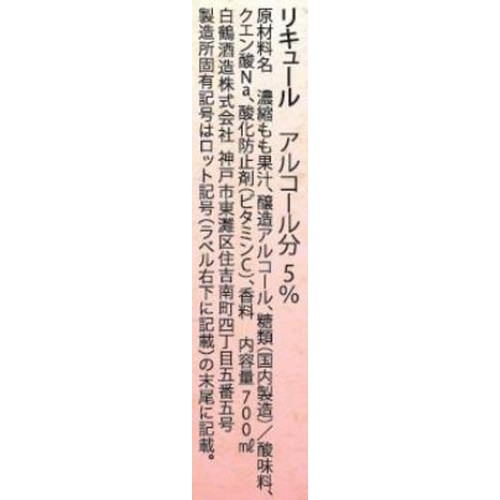 リキュール アルコール分 5%
原材料名 濃縮もも果汁、醸造アルコール、糖類(国内製造)/酸味料、
クエン酸Na、酸化防止剤(ビタミンC)、香料 内容量 700㎖
白鶴酒造株式会社 神戸市東灘区住吉南町四丁目五番五号
製造所固有記号はロット記号(ラベル右下に記載)の末尾に記載。